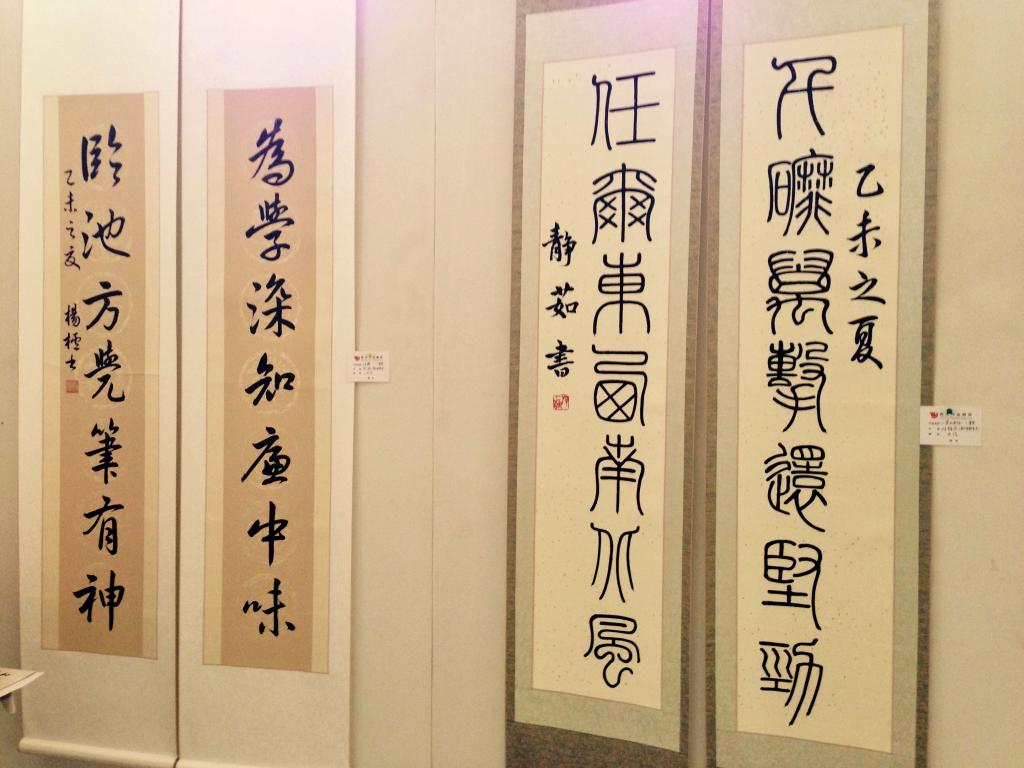 千磨萬擊還堅勁
乙未之夏
任爾東西南北風
靜茹書
為學深知廉中味
臨池方覺筆有神
乙未之夏 楊極書